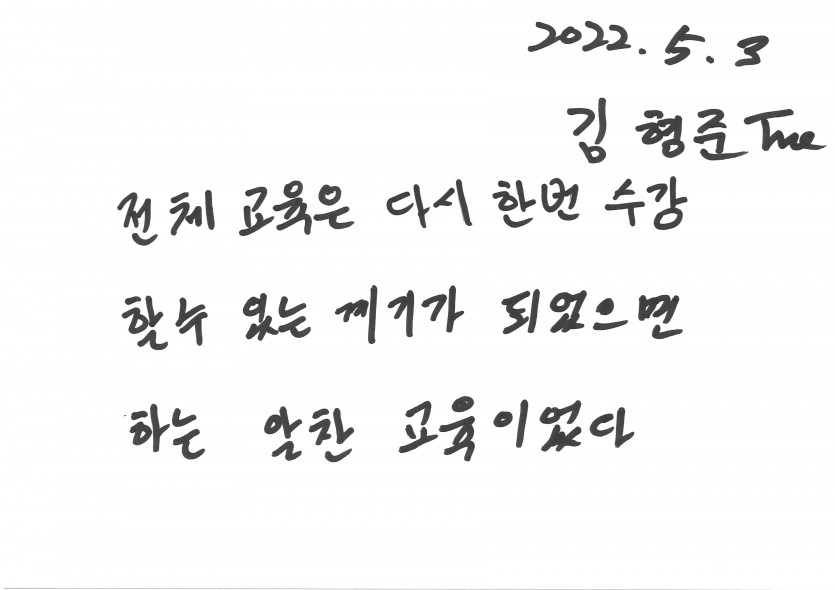 2022. 5. 3
김형준 Tne
전체 교육은 다시 한번 수강
할수 있는 께기가 되었으면
하는 알찬 교육이었다